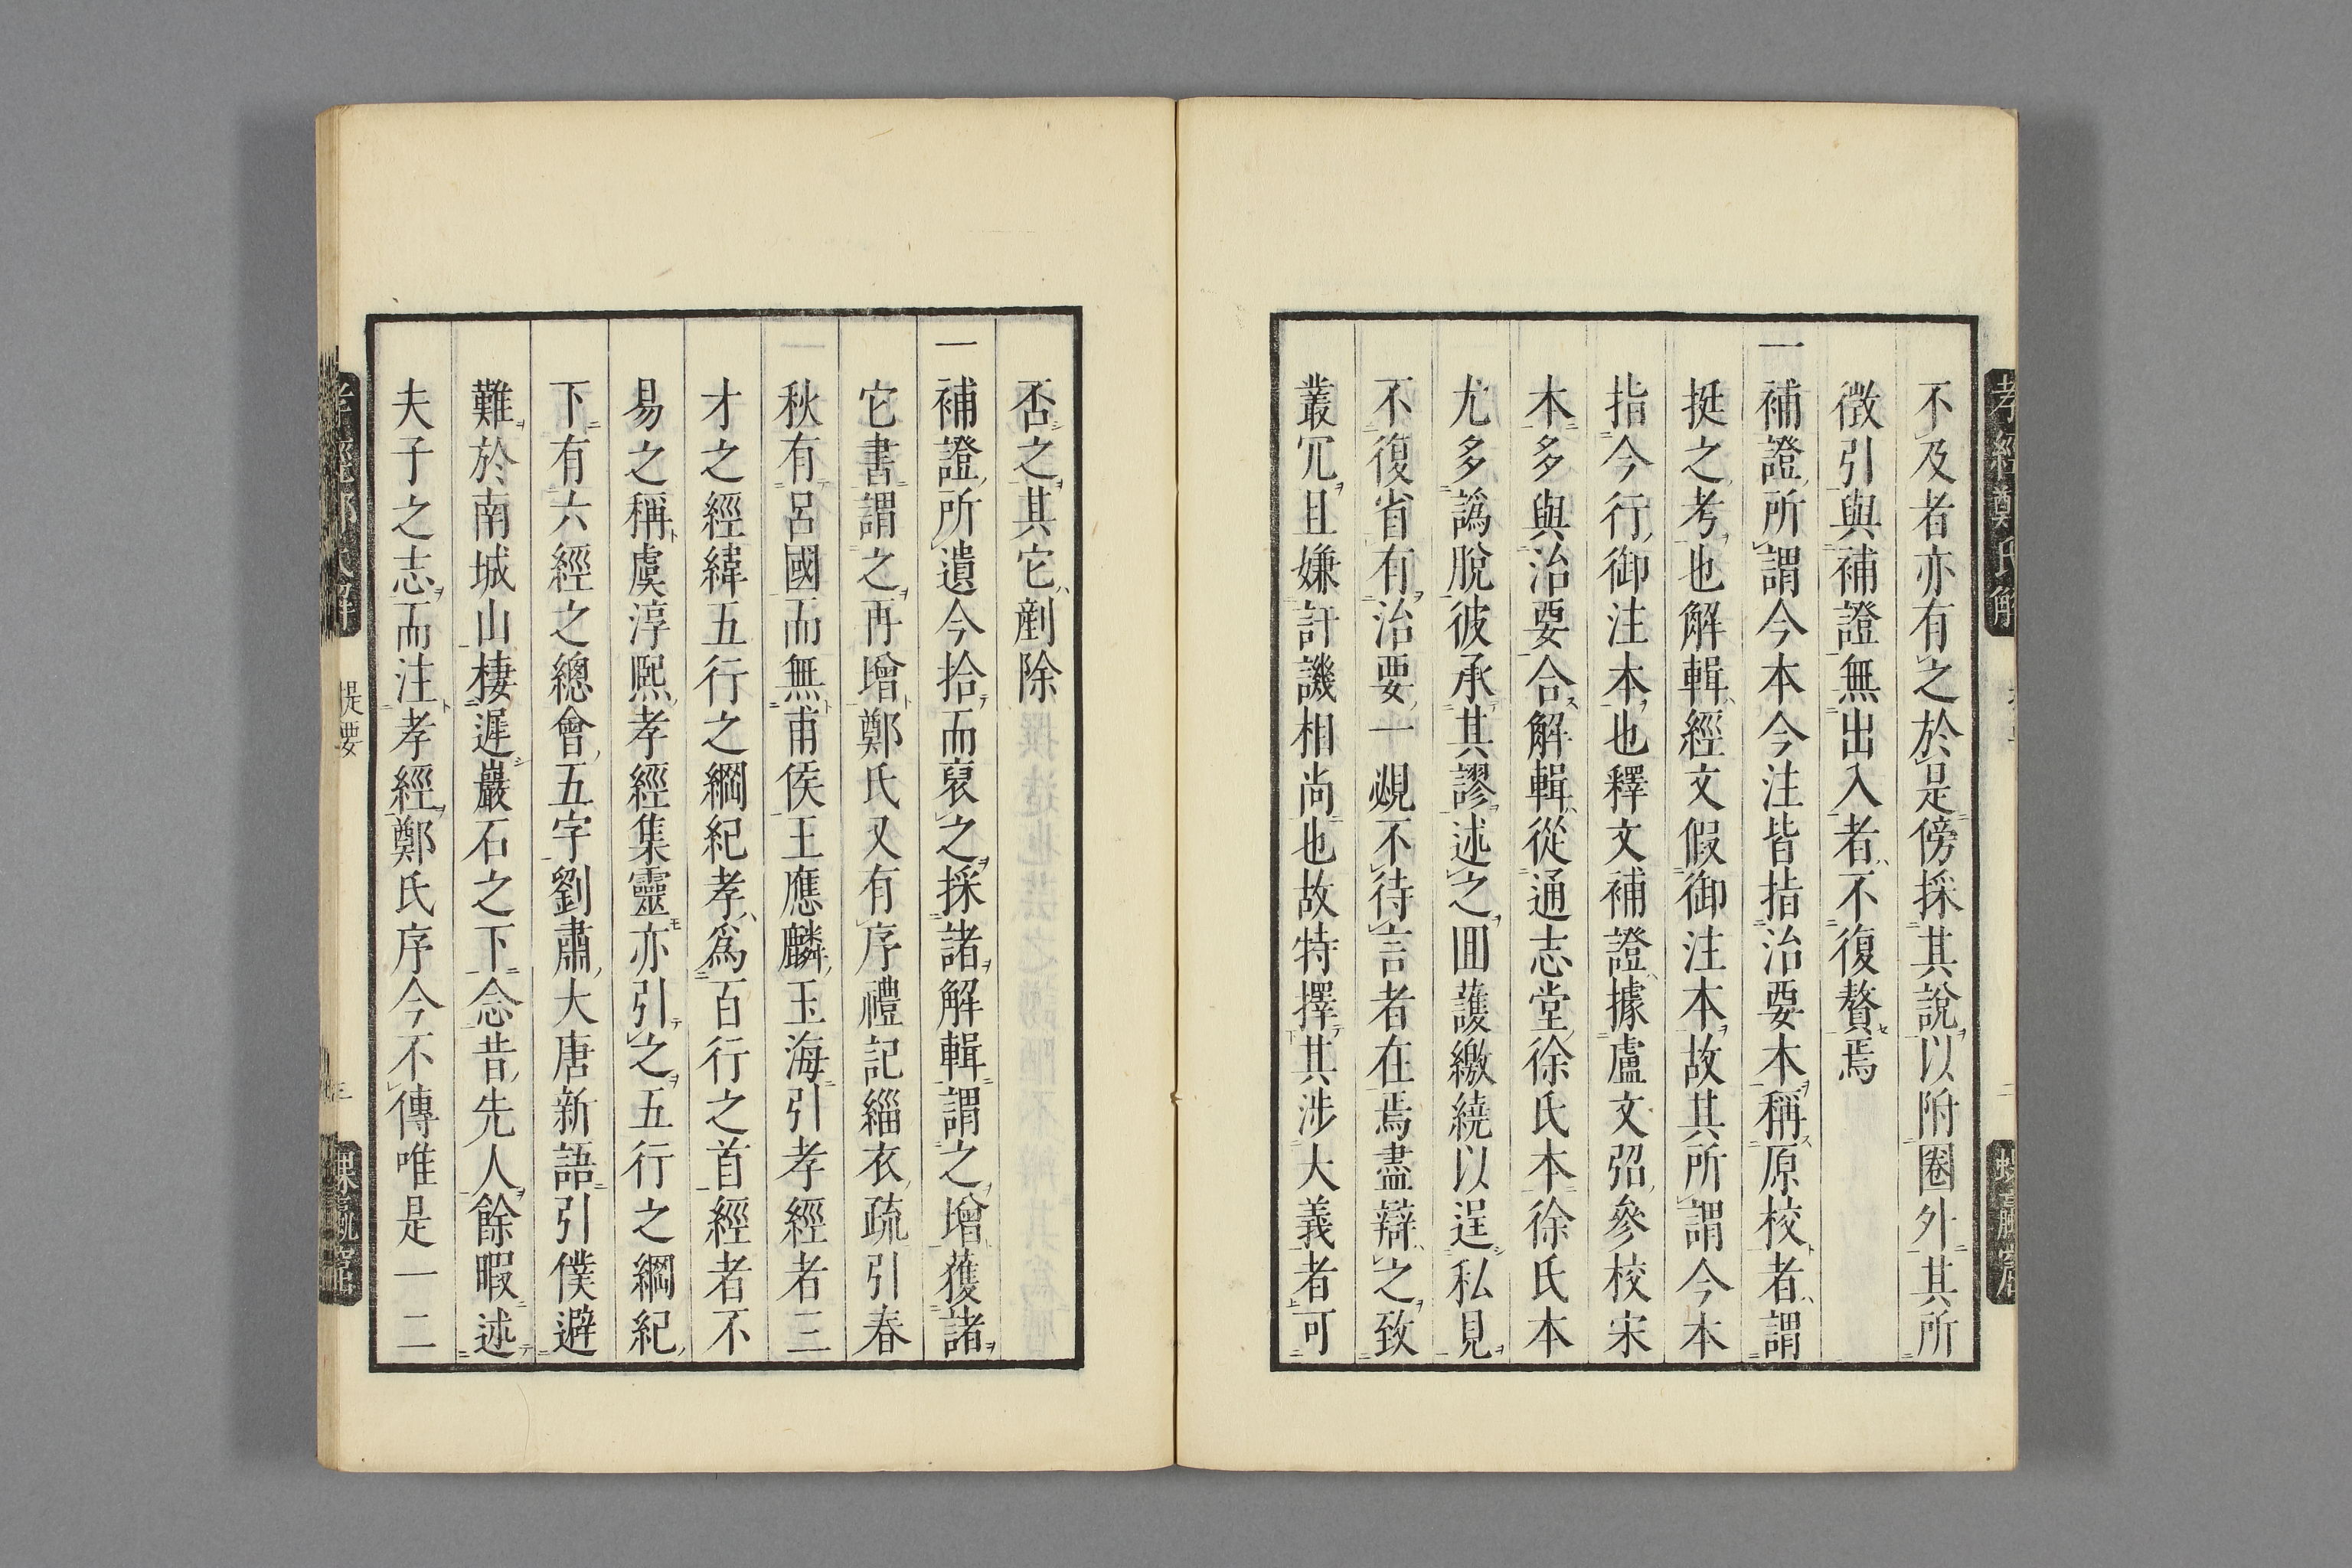 不及者亦有之於是傍採其說以附圈外其所
徵引與補證無出入者不復贅焉
一補證所謂今本今注皆指治要本稱原校者謂
挺之考也解輯經文假御注本故其所謂今本
指今行御注本也釋文補證據盧文弨參校宋
本多與治要合解輯從通志堂徐氏本徐氏本
尤多譌脫彼承其謬述之囬護繳繞以逞私見
不復省有治要一覞不待言者在焉盡辯之致
叢冗且嫌訐譏相尚也故特擇其涉大義者可
否之其它剷除
一補證所遺今拾而裒之採諸解輯謂之增獲諸
它書謂之再增鄭氏又有序禮記緇衣疏引春
秋有呂國而無甫侯王應麟玉海引孝經者三
才之經緯五行之綱紀孝爲百行之首經者不
易之稱虞淳熙孝經集靈亦引之五行之綱紀
下有六經之總會五字劉肅大唐新語引僕避
難於南城山棲遲巖石之下念昔先人餘暇述
夫子之志而注孝經鄭氏序今不傳唯是一二
孝經鄭氏解
二
提要
三